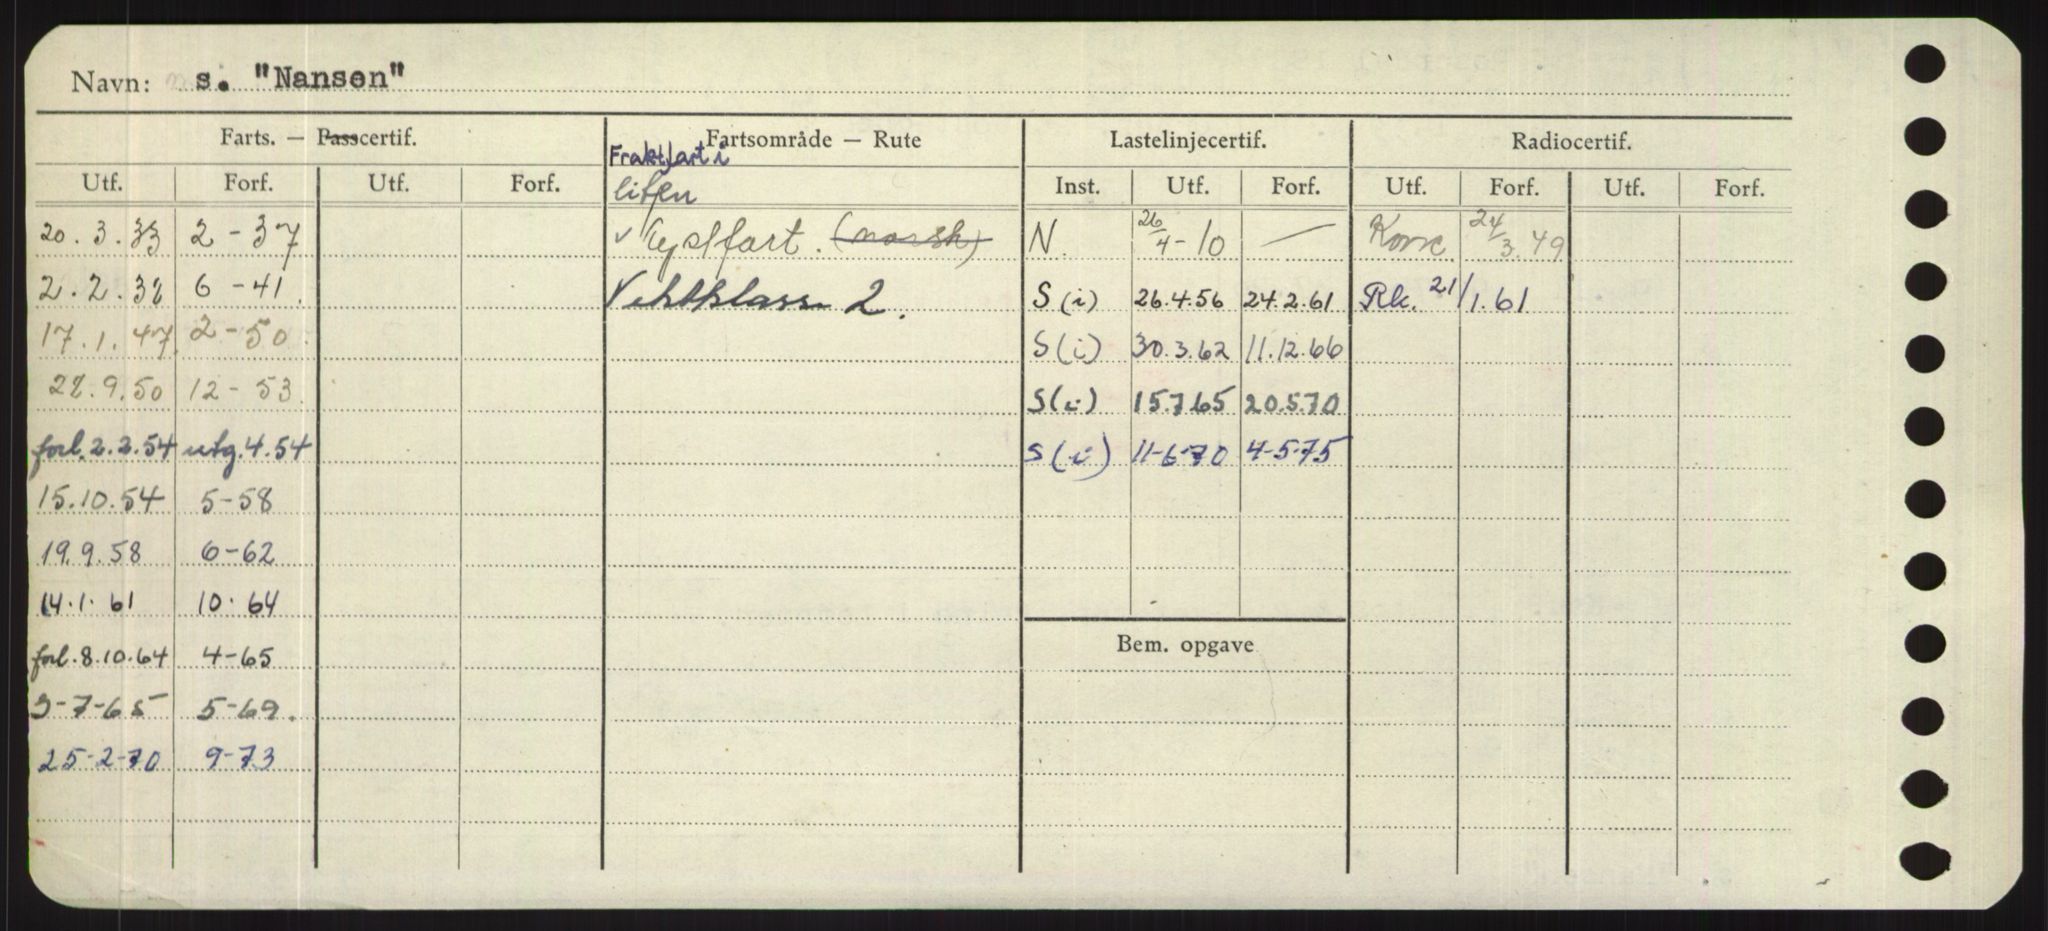 Navn: s. "Nansen"
Farts. — Passcertif. Fartsområde — Rute Lastelinjecertif. Radiocertif.
Fraktfart i
Utf. Forf. Utf. Forf. liten Inst. Utf. Forf. Utf. Forf. Utf. Forf.
20.3.33 2-37 Kystfart. (norsk) N. 26/4-10 — Konv. 24/3.49
2.2.38 6-41. Vektklasse 2. S (i) 26.4.56 24.2.61 Rk. 21/1.61
17.1.47. 2-50. S (i) 30.3.62 11.12.66
28.9.50 12-53. S (i) 15.7.65 20.5.70
forl. 2.2.54 utg. 4.54 S (i) 11-6-70 4-5-75
15.10.54 5-58
19.9.58 6-62
14.1.61 10.64
Bem. opgave
forl. 8.10.64 4-65
3-7-65 5-69.
25-2-70 9-73